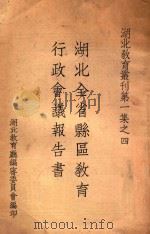 湖北教育叢刊第一集之四
湖北全省縣區教育
行政會議報告書
湖北教育廳編審委員會編印